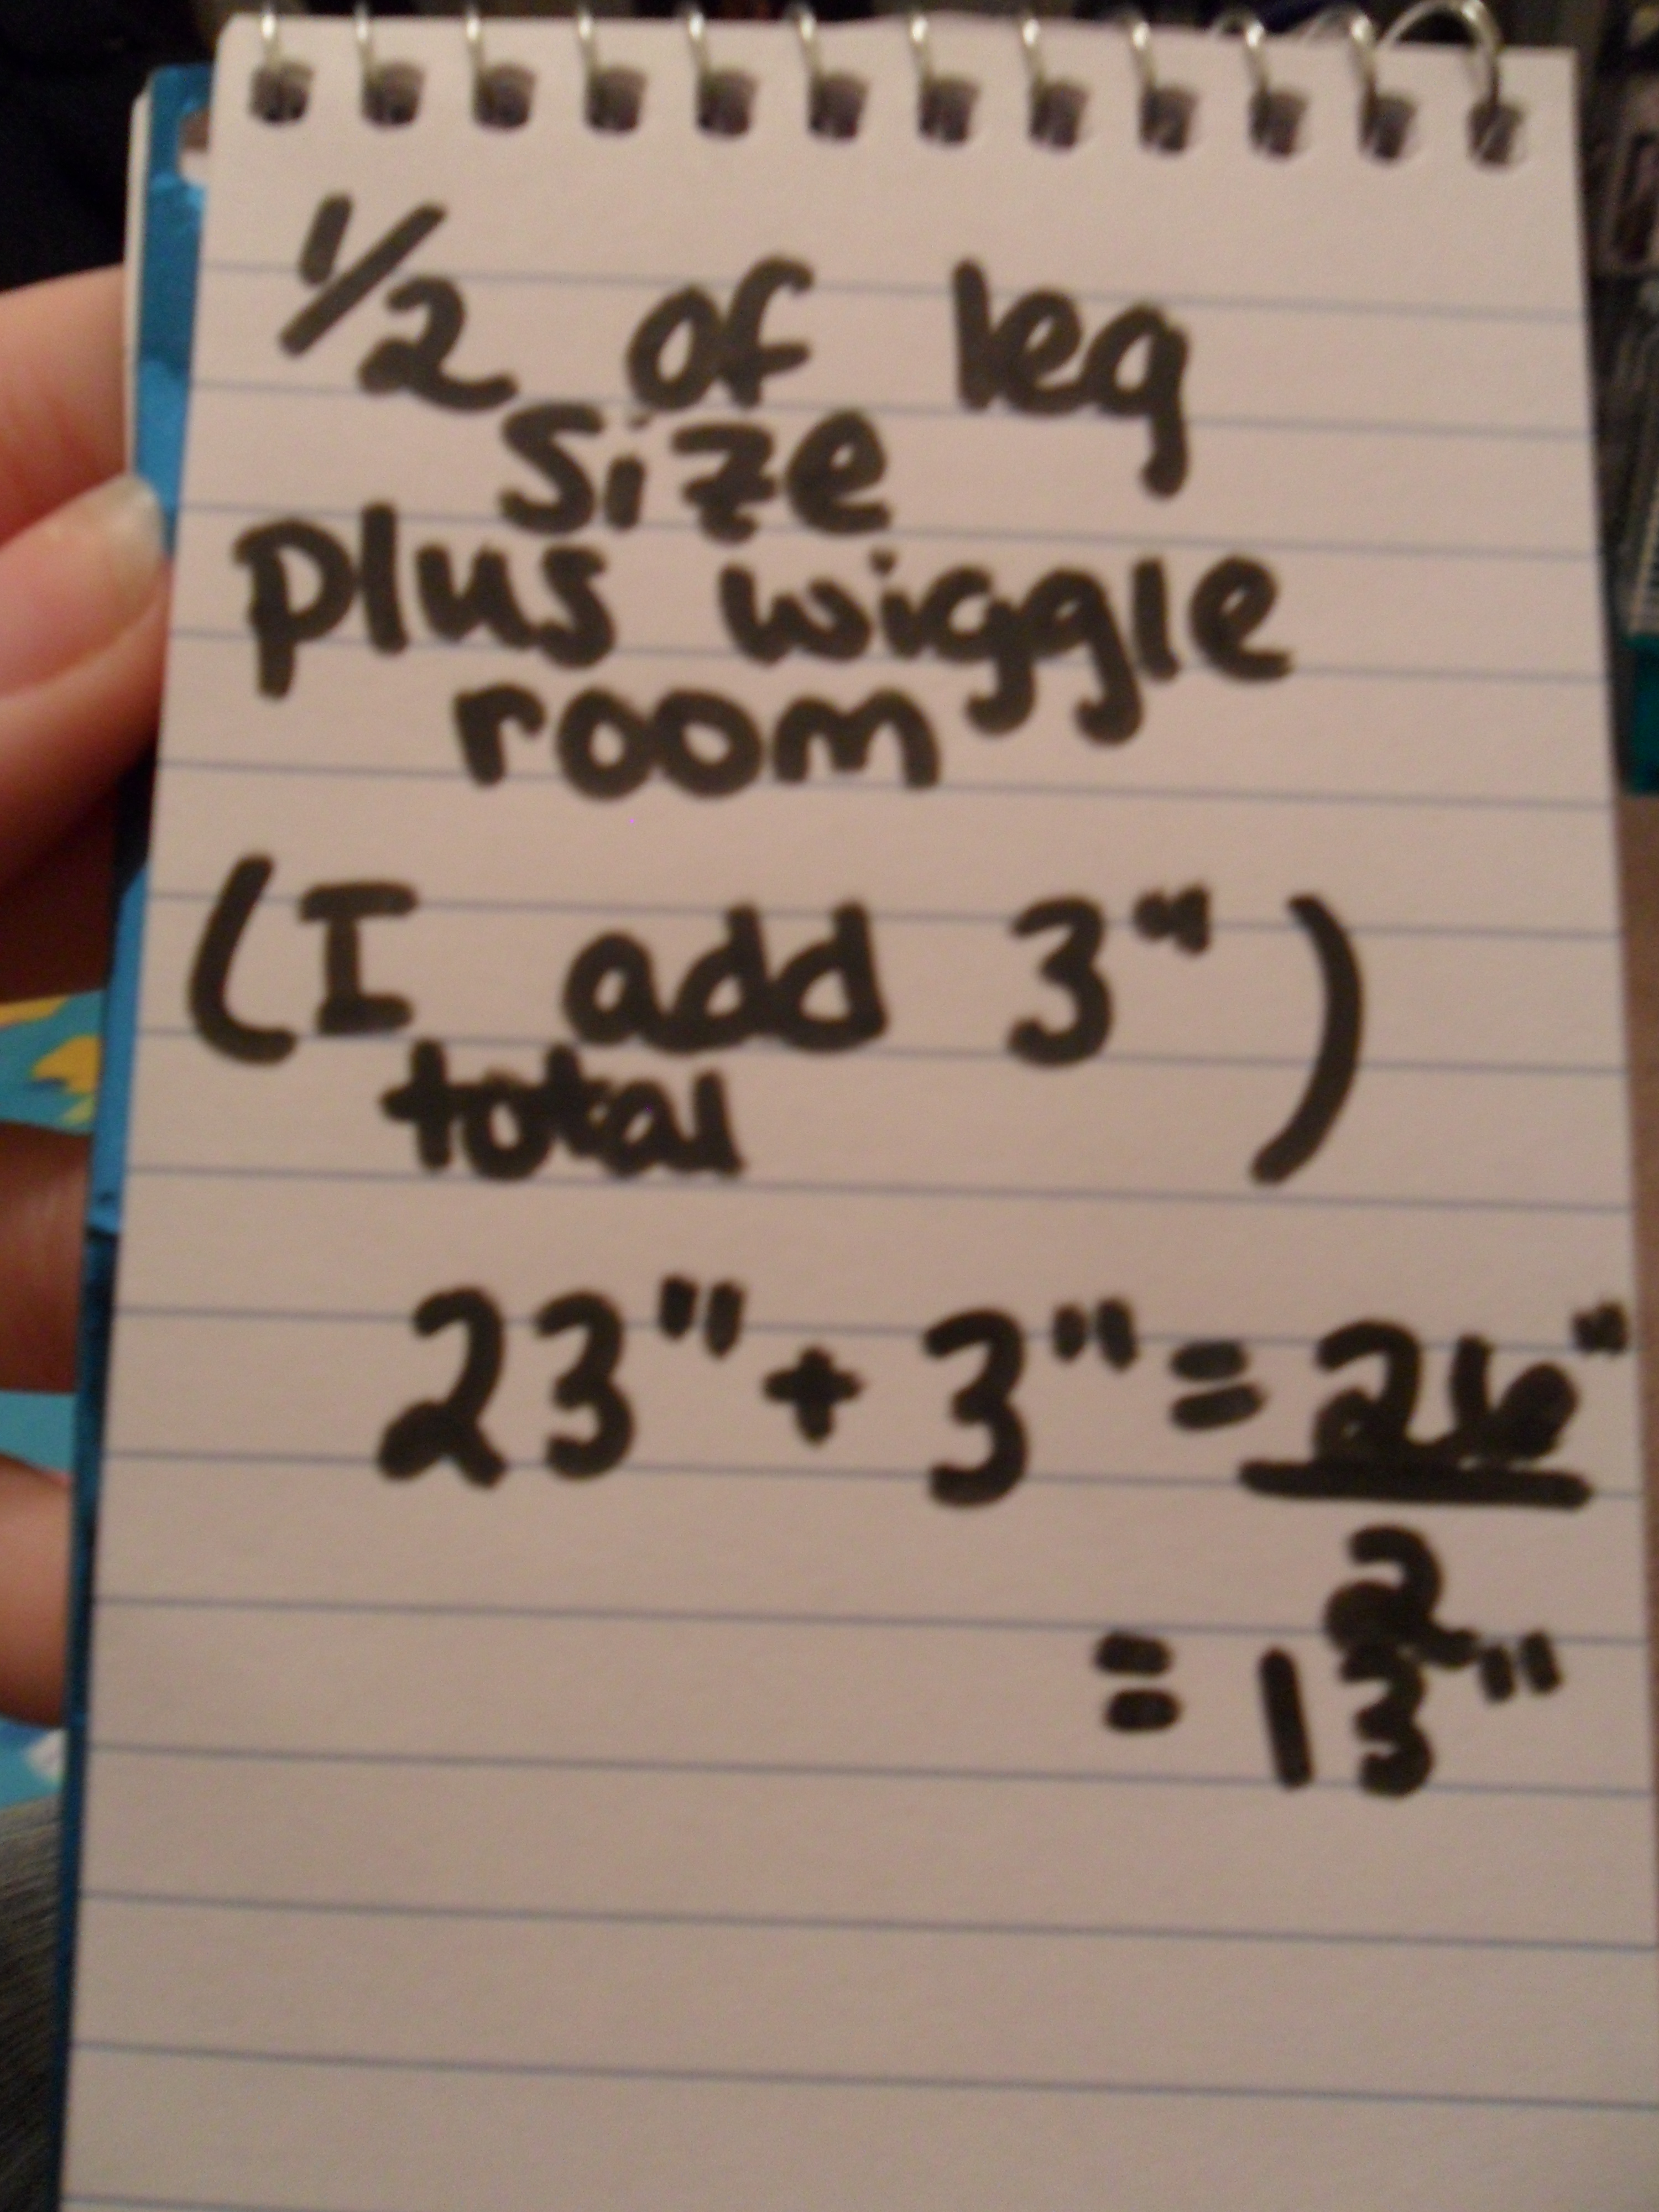 1/2 of leg
size
plus wiggle
room
(I add 3")
total
23" + 3" = 26"
2
= 13"